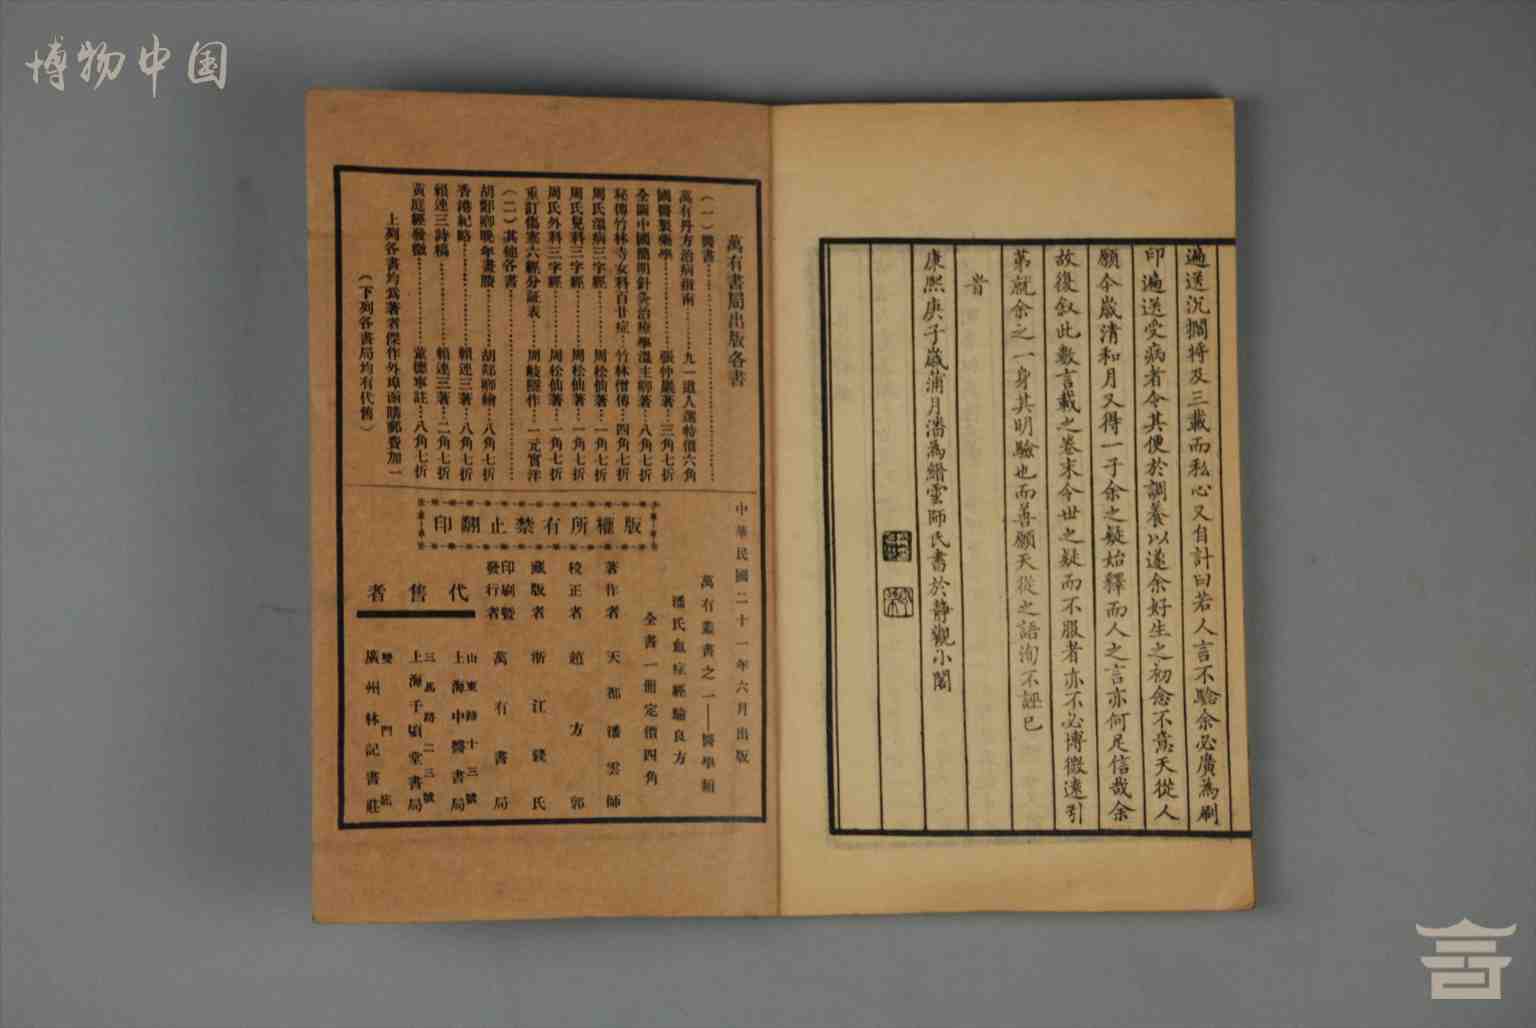 博物中国
遍送沉擱將及三載而私心又自計曰若人言不驗余必廣為刷
印遍送受病者令其便於調養以遂余好生之初念不意天從人
願今歲清和月又得一子余之疑始釋而人之言亦何足信哉余
故復叙此數言載之卷末今世之疑而不服者亦不必博徵遠引
苐就余之一身其明驗也而善願天從之語洵不誣已
旹
康熙庚子歲蒲月潘為縉雲師氏書於靜觀小閣
萬有書局出版各書
(一)醫書
萬有丹方治病指南 九一道人選 特價六角
國醫製藥學 張仲巖著 三角七折
全圖中國簡明針灸治療學 溫主卿著 八角七折
秘傳竹林寺女科百廿症 竹林僧傳 四角七折
周氏溫病三字經 周松仙著 一角七折
周氏兒科三字經 周松仙著 一角七折
周氏外科三字經 周松仙著 一角七折
重訂傷寒六經分証表 周岐隱作 一元實洋
(二)其他各書
胡郯卿晚年畫賸 胡郯卿繪 八角七折
香港紀略 賴連三著 八角七折
賴連三詩稿 賴連三著 二角七折
黃庭經發微 董德寧註 八角七折
上列各書均爲著者傑作外埠函購郵費加一
(下列各書局均有代售)
中華民國二十一年六月出版
萬有叢書之一——醫學類
潘氏血症經驗良方
全書一冊定價四角
版權所有禁止翻印
著作者 天都潘雲師
校正者 趙方郭
藏版者 浙江錢氏
印刷暨發行者 萬有書局
代售者
上海中醫書局 山東路十三號
上海千頃堂書局 三馬路二三號
廣州林記書莊 雙門底